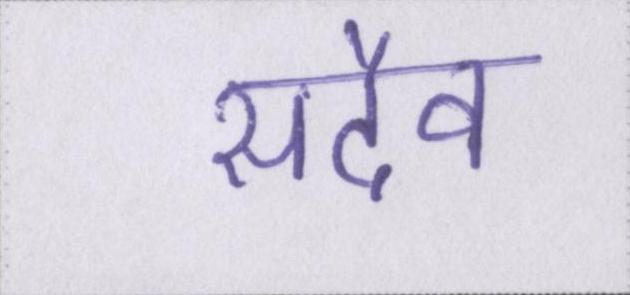 सदैव